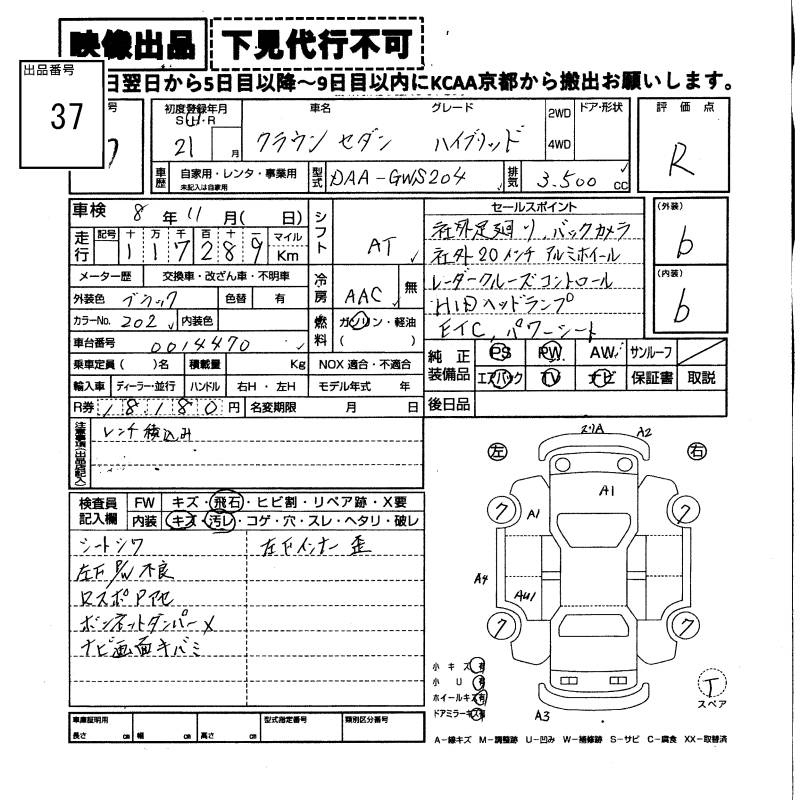 映像出品 下見代行不可
出品番号
37
日翌日から5日目以降～9日目以内にKCAA京都から搬出お願いします。
初度登録年月 車名 グレード 2WD ドア・形状 評価点
S・H・R
21 月 クラウン セダン ハイブリッド 4WD R
車歴 自家用・レンタ・事業用 型式 DAA-GWS204 排気 3.500 cc
未記入は自家用
車検 8 年 11 月 ( 日) シフト AT セールスポイント (外装)
社外足廻り、バックカメラ b
走行 記号 十 万 千 百 十 一 マイル
117289 Km
社外20インチアルミホイール
メーター歴 交換車・改ざん車・不明車 冷房 AAC 無 レーダークルーズコントロール (内装)
外装色 ブラック 色替 有 HIDヘッドランプ b
カラーNo. 202 内装色 燃料 ガソリン・軽油 ( ) ETC、パワーシート
車台番号 0014470
乗車定員 ( )名 積載量 Kg NOX 適合・不適合 純正装備品 PS PW AW サンルーフ
輸入車 ディーラー・並行 ハンドル 右H・左H モデル年式 年 エアバック TV ナビ 保証書 取説
R券 18180 円 名変期限 月 日 後日品
注意事項(出品店記入) レンチ積込み
左 右
スリA A2
A1
A1
A4
AU1
A3
ワ ワ
ワ ワ
検査員記入欄 FW キズ・飛石・ヒビ割・リペア跡・X要
内装 キズ・汚レ・コゲ・穴・スレ・ヘタリ・破レ
シートシワ 左Fインナー歪
左F P/W不良
ボンネットダンパー×
ナビ画面キバミ
小キズ 有
小U 有
ホイールキズ 有
ドアミラーキズ 有
T
スペア
車庫証明用 型式指定番号 類別区分番号
長さ cm 幅 cm 高さ cm
A－線キズ M－調整跡 U－凹み W－補修跡 S－サビ C－腐食 XX－取替済